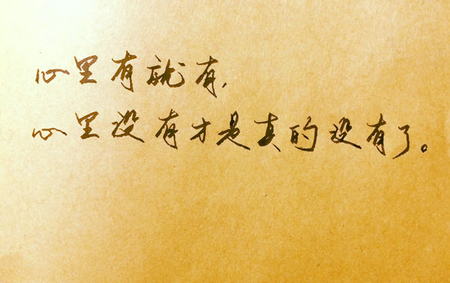 心里有就有，
心里没有才是真的没有了。